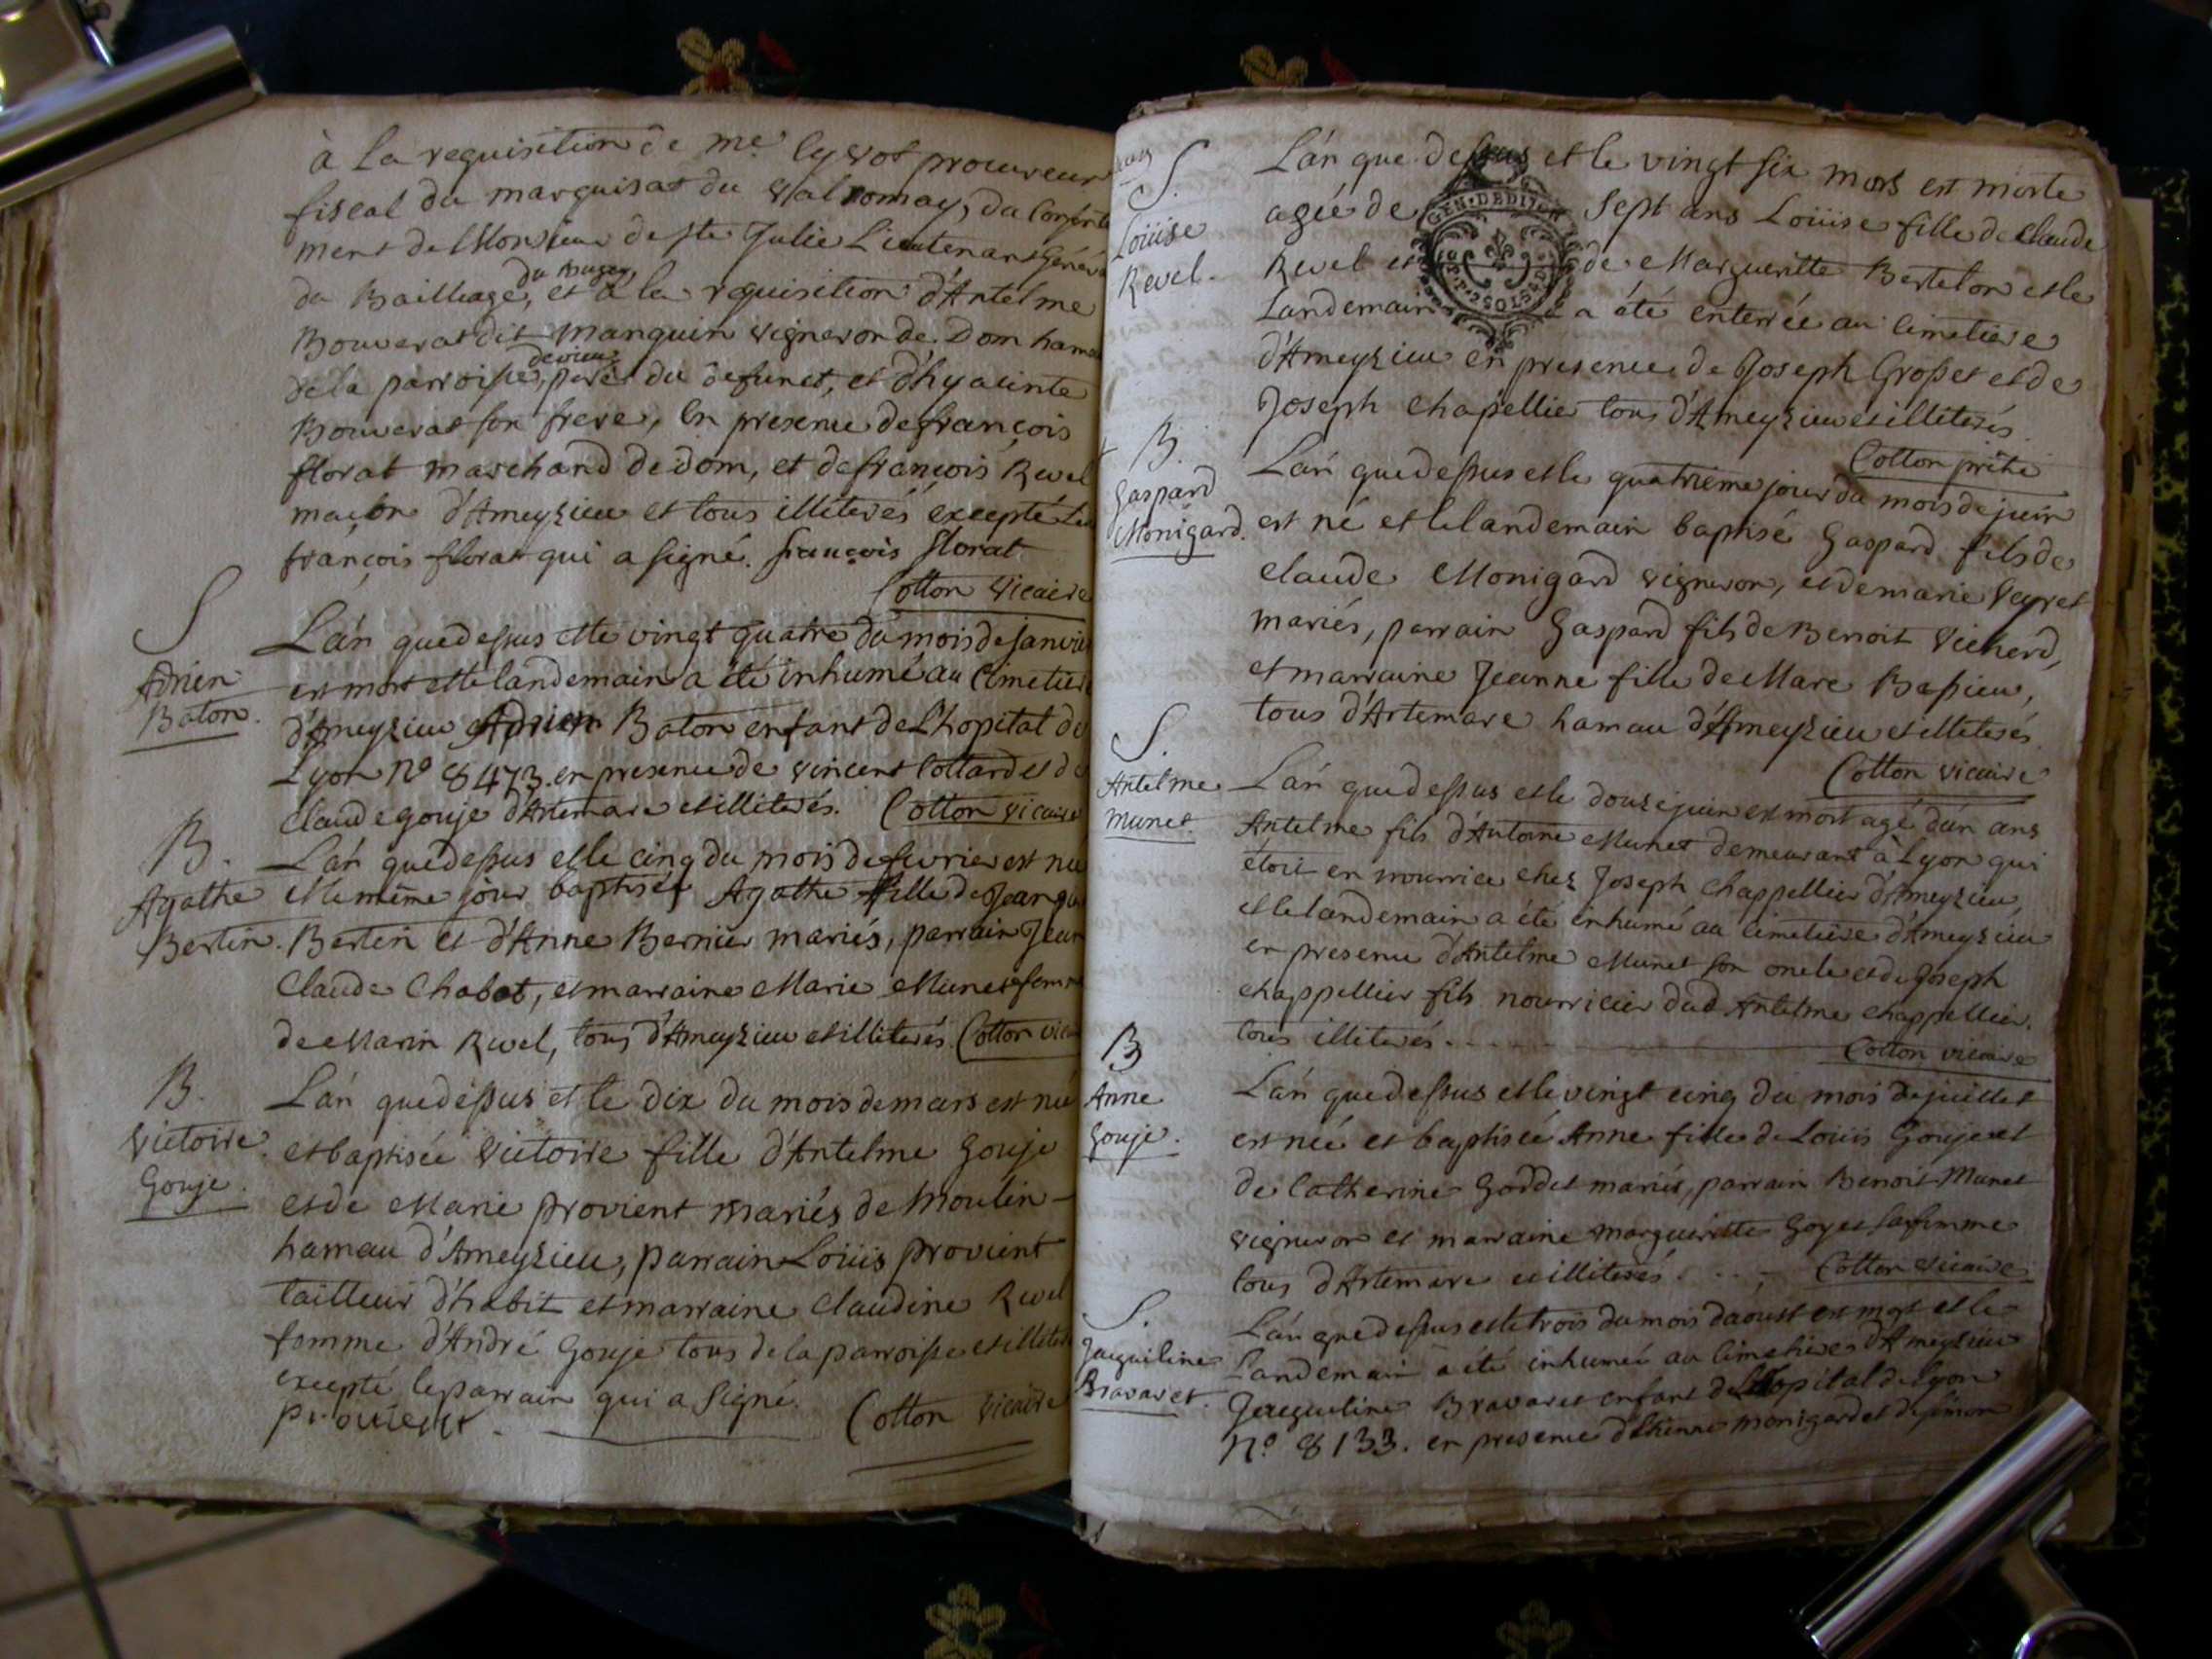 à la requisition de me. Cyvot procureur
fiscal du marquisat du valromay, du Consente
ment de Monsieur de ste Julie Lieutenant Généra
du Bailliage, et à la requisition d'Antelme
du Bugey,
Bouverat dit manquin vigneron de Dom hame
de la parroisse, pere du defunct, et d'hyacinte
devieu
Bouverat son frere, en presence de françois
florat marchand de dom, et de françois Revel
maçon d'Ameyzieu et tous illiterés excepté led
françois florat qui a signé. françois florat.
Cotton vicaire
S
Adrien
Baton.
L'an que dessus et le vingt quatre du mois de janvier
est mort et le landemain a été inhumé au Cimetiere
d'Ameyzieu Adrien Baton enfant de l'hopital de
Lyon no 8473. en presence de vincent Cottard et de
Claude gouje d'Artemare et illiterés. Cotton vicaire
B.
Agathe
Bertin.
L'an que dessus et le cinq du mois de fevrier est née
et le même jour baptisée Agathe fille de Jean
Bertin et d'Anne Bernier mariés, parrain Jean
Claude Chabot, et marraine Marie Munet femme
de Marin Revel, tous d'Ameyzieu et illiterés. Cotton vicai
B.
Victoire
Gouje.
L'an que dessus et le dix du mois de mars est née
et baptisée Victoire fille d'Antelme Gouje
et de Marie provient mariés de Moulin
hameau d'Ameyzieu, parrain Loüis provient
tailleur d'habit et marraine Claudine Revel
femme d'André Gouje tous de la parroisse et illiteré
excepté le parrain qui a signé.
provient. Cotton vicaire
S.
Loüise
Revel.
L'an que dessus et le vingt six mars est morte
agée de sept ans Loüise fille de Claude
Revel et de Margueritte Bertelon et le
landemain a été enterrée au cimetiere
d'Ameyzieu en presence de Joseph Grosset et de
Joseph Chapellier tous d'Ameyzieu et illiterés
Cotton prêtre
GEN. DED
B.
Gaspard
Monigard.
L'an que dessus et le quatrieme jour du mois de juin
est né et le landemain baptisé Gaspard fils de
Claude Monigard vigneron, et de marie Veyret
mariés, parrain Gaspard fils de Benoit Vicherd,
et marraine Jeanne fille de Marc Bassieu,
tous d'Artemare hameau d'Ameyzieu et illiterés
Cotton vicaire
S.
Antelme
Munet.
L'an que dessus et le douze juin est mort agé d'un ans
Antelme fils d'Antoine Munet demeurant à Lyon qui
étoit en nourrice chez Joseph Chappellier d'Ameyzieu,
et le landemain a été inhumé au cimetiere d'Ameyzieu
en presence d'Antelme Munet son oncle et de Joseph
chappellier fils nourricier dud. Antelme chappellier.
tous illiterés. Cotton vicaire
B
Anne
Gouje.
L'an que dessus et le vingt cinq du mois de juillet
est née et baptisée Anne fille de Loüis Gouje et
de Catherine Goddet mariés, parrain Benoit Munet
vigneron et marraine margueritte Goyet sa femme
tous d'Artemare et illiterés. Cotton vicaire
S.
Jaqueline
Bravaret.
L'an que dessus et le trois du mois d'aoust est mort et le
landemain a été inhumée au cimetiere d'Ameyzieu
Jacqueline Bravaret enfant de l'hopital de Lyon
No. 8133. en presence d'Etienne monigard et de simon